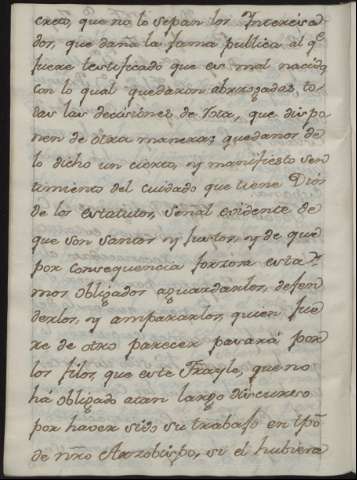 creto, que no lo sepan los Interesa-
dos, que daña la fama publica al qᵉ
fuere testificado que es mal nacido,
con lo qual quedaron abrrogadas, to
das las decisiones de Rota, que dispo
nen de otra manera; quedanos de
lo dicho un cierto, y manifiesto sen
timiento del cuidado que tiene Dios
de los estatutos, señal evidente de
que son santos y justos, y de que
por consequencia forzosa esta-
mos obligados aguardarlos, defen
derlos, y ampararlos, quien fue
re de otro parecer pasará por
los filos, que este Frayle, que no
há obligado atan largo discurso
por haver sido su trabajo en tpõ
de nr̃o Arzobispo, si el hubiera